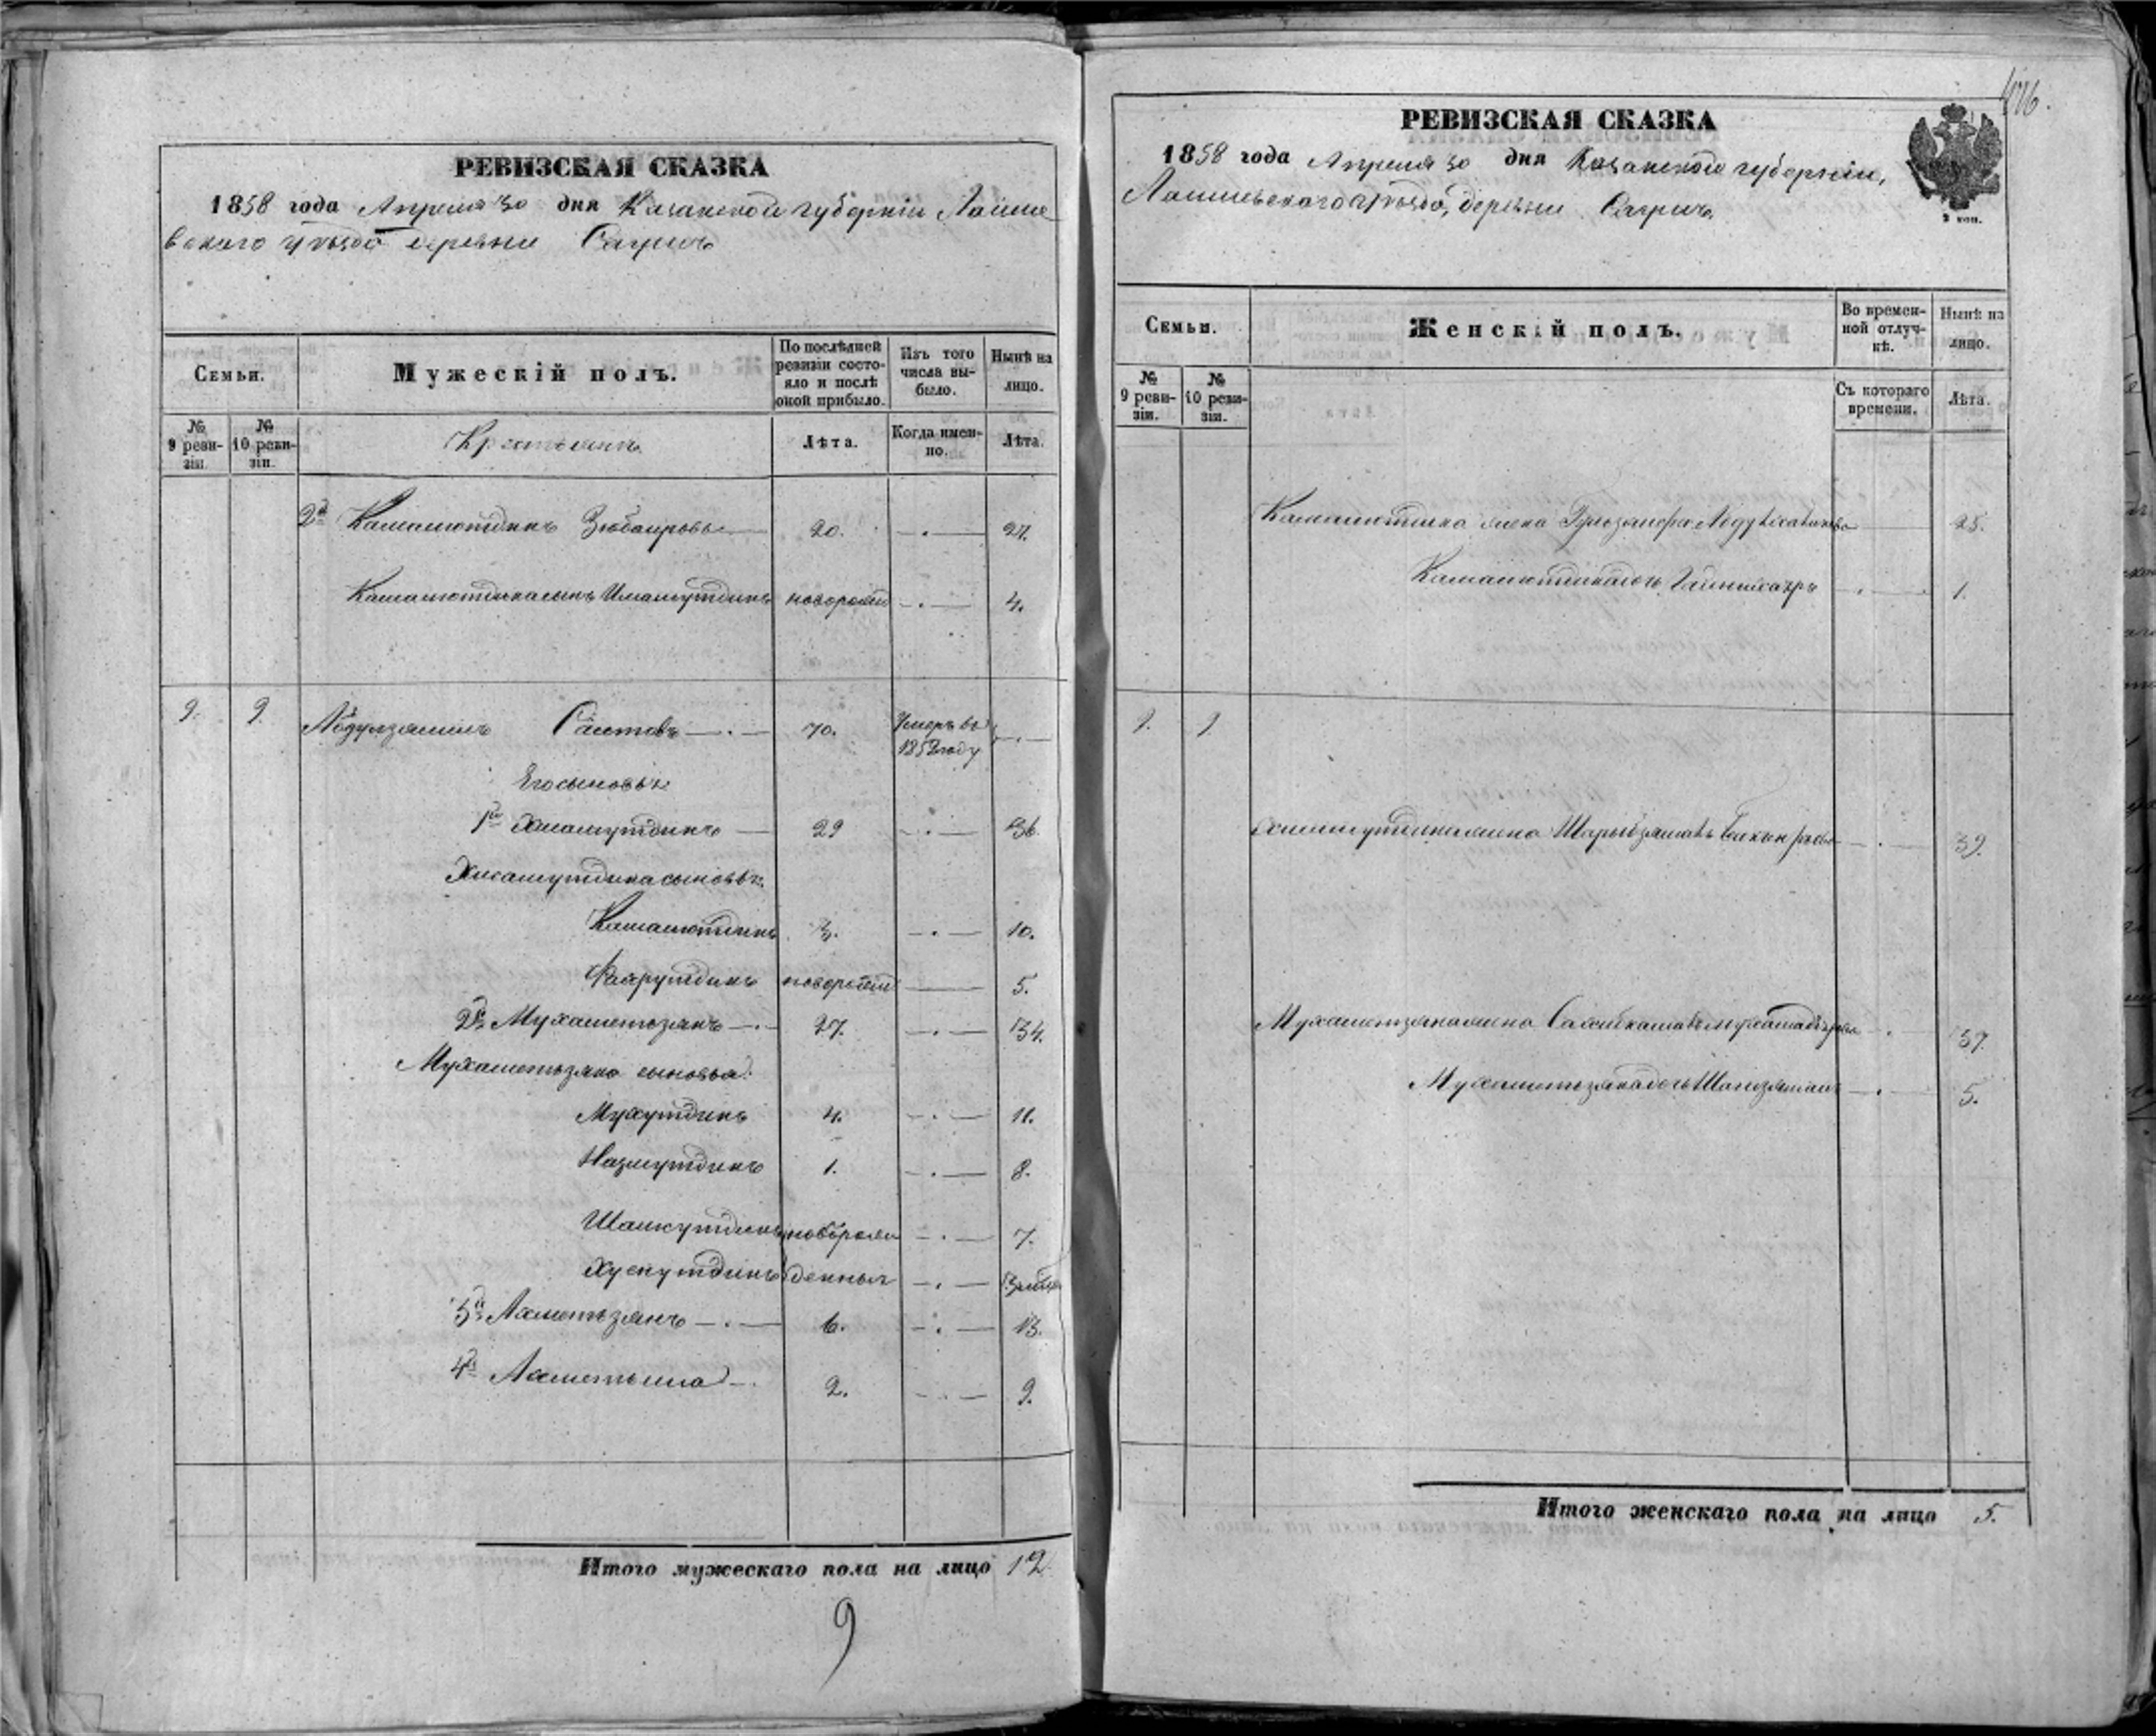 РЕВИЗСКАЯ СКАЗКА
1858 года Апреля 30 дня Казанской губерніи Лаише
вскаго уѣзда деревни
Семьи.
Мужескій полъ.
По послѣдней ревизіи состояло и послѣ оной прибыло.
Изъ того числа выбыло.
Нынѣ на лицо.
№ 9 ревизіи.
№ 10 ревизіи.
Крестьянъ
Лѣта.
Когда именно.
Лѣта.
2й Камалютдинъ Зюбаировъ 20. 27.
Камалютдина сынъ Имамутдинъ новорожд 4.
9. 9. Абдулзямилъ Саитовъ 70. Умеръ въ 1852 году
Его сыновья:
1й Хисамутдинъ 29 36.
Хисамутдина сыновья:
Камалютдинъ 3. 10.
Фахрутдинъ новорожд 5.
2й Мухаметзянъ 27. 34.
Мухаметзяна сыновья:
Мухутдинъ 4. 11.
Назмутдинъ 1. 8.
новорож 7.
Хуснутдинъ денныя
3й Ахметзянъ 6. 13.
4й Ахметша 2. 9.
Итого мужескаго пола на лицо 12
9
РЕВИЗСКАЯ СКАЗКА
1858 года Апреля 30 дня Казанской губерніи,
Лаишевскаго уѣзда, деревни
Семьи.
Женскій полъ.
Во временной отлучкѣ.
Нынѣ на лицо.
№ 9 ревизіи.
№ 10 ревизіи.
Съ котораго времени.
Лѣта.
Камалютдина жена 25.
Камалютдина дочь 1.
9. 9
Хисамутдина жена 39.
Мухаметзяна жена 37.
Мухаметзяна дочь 5.
Итого женскаго пола на лицо 5.